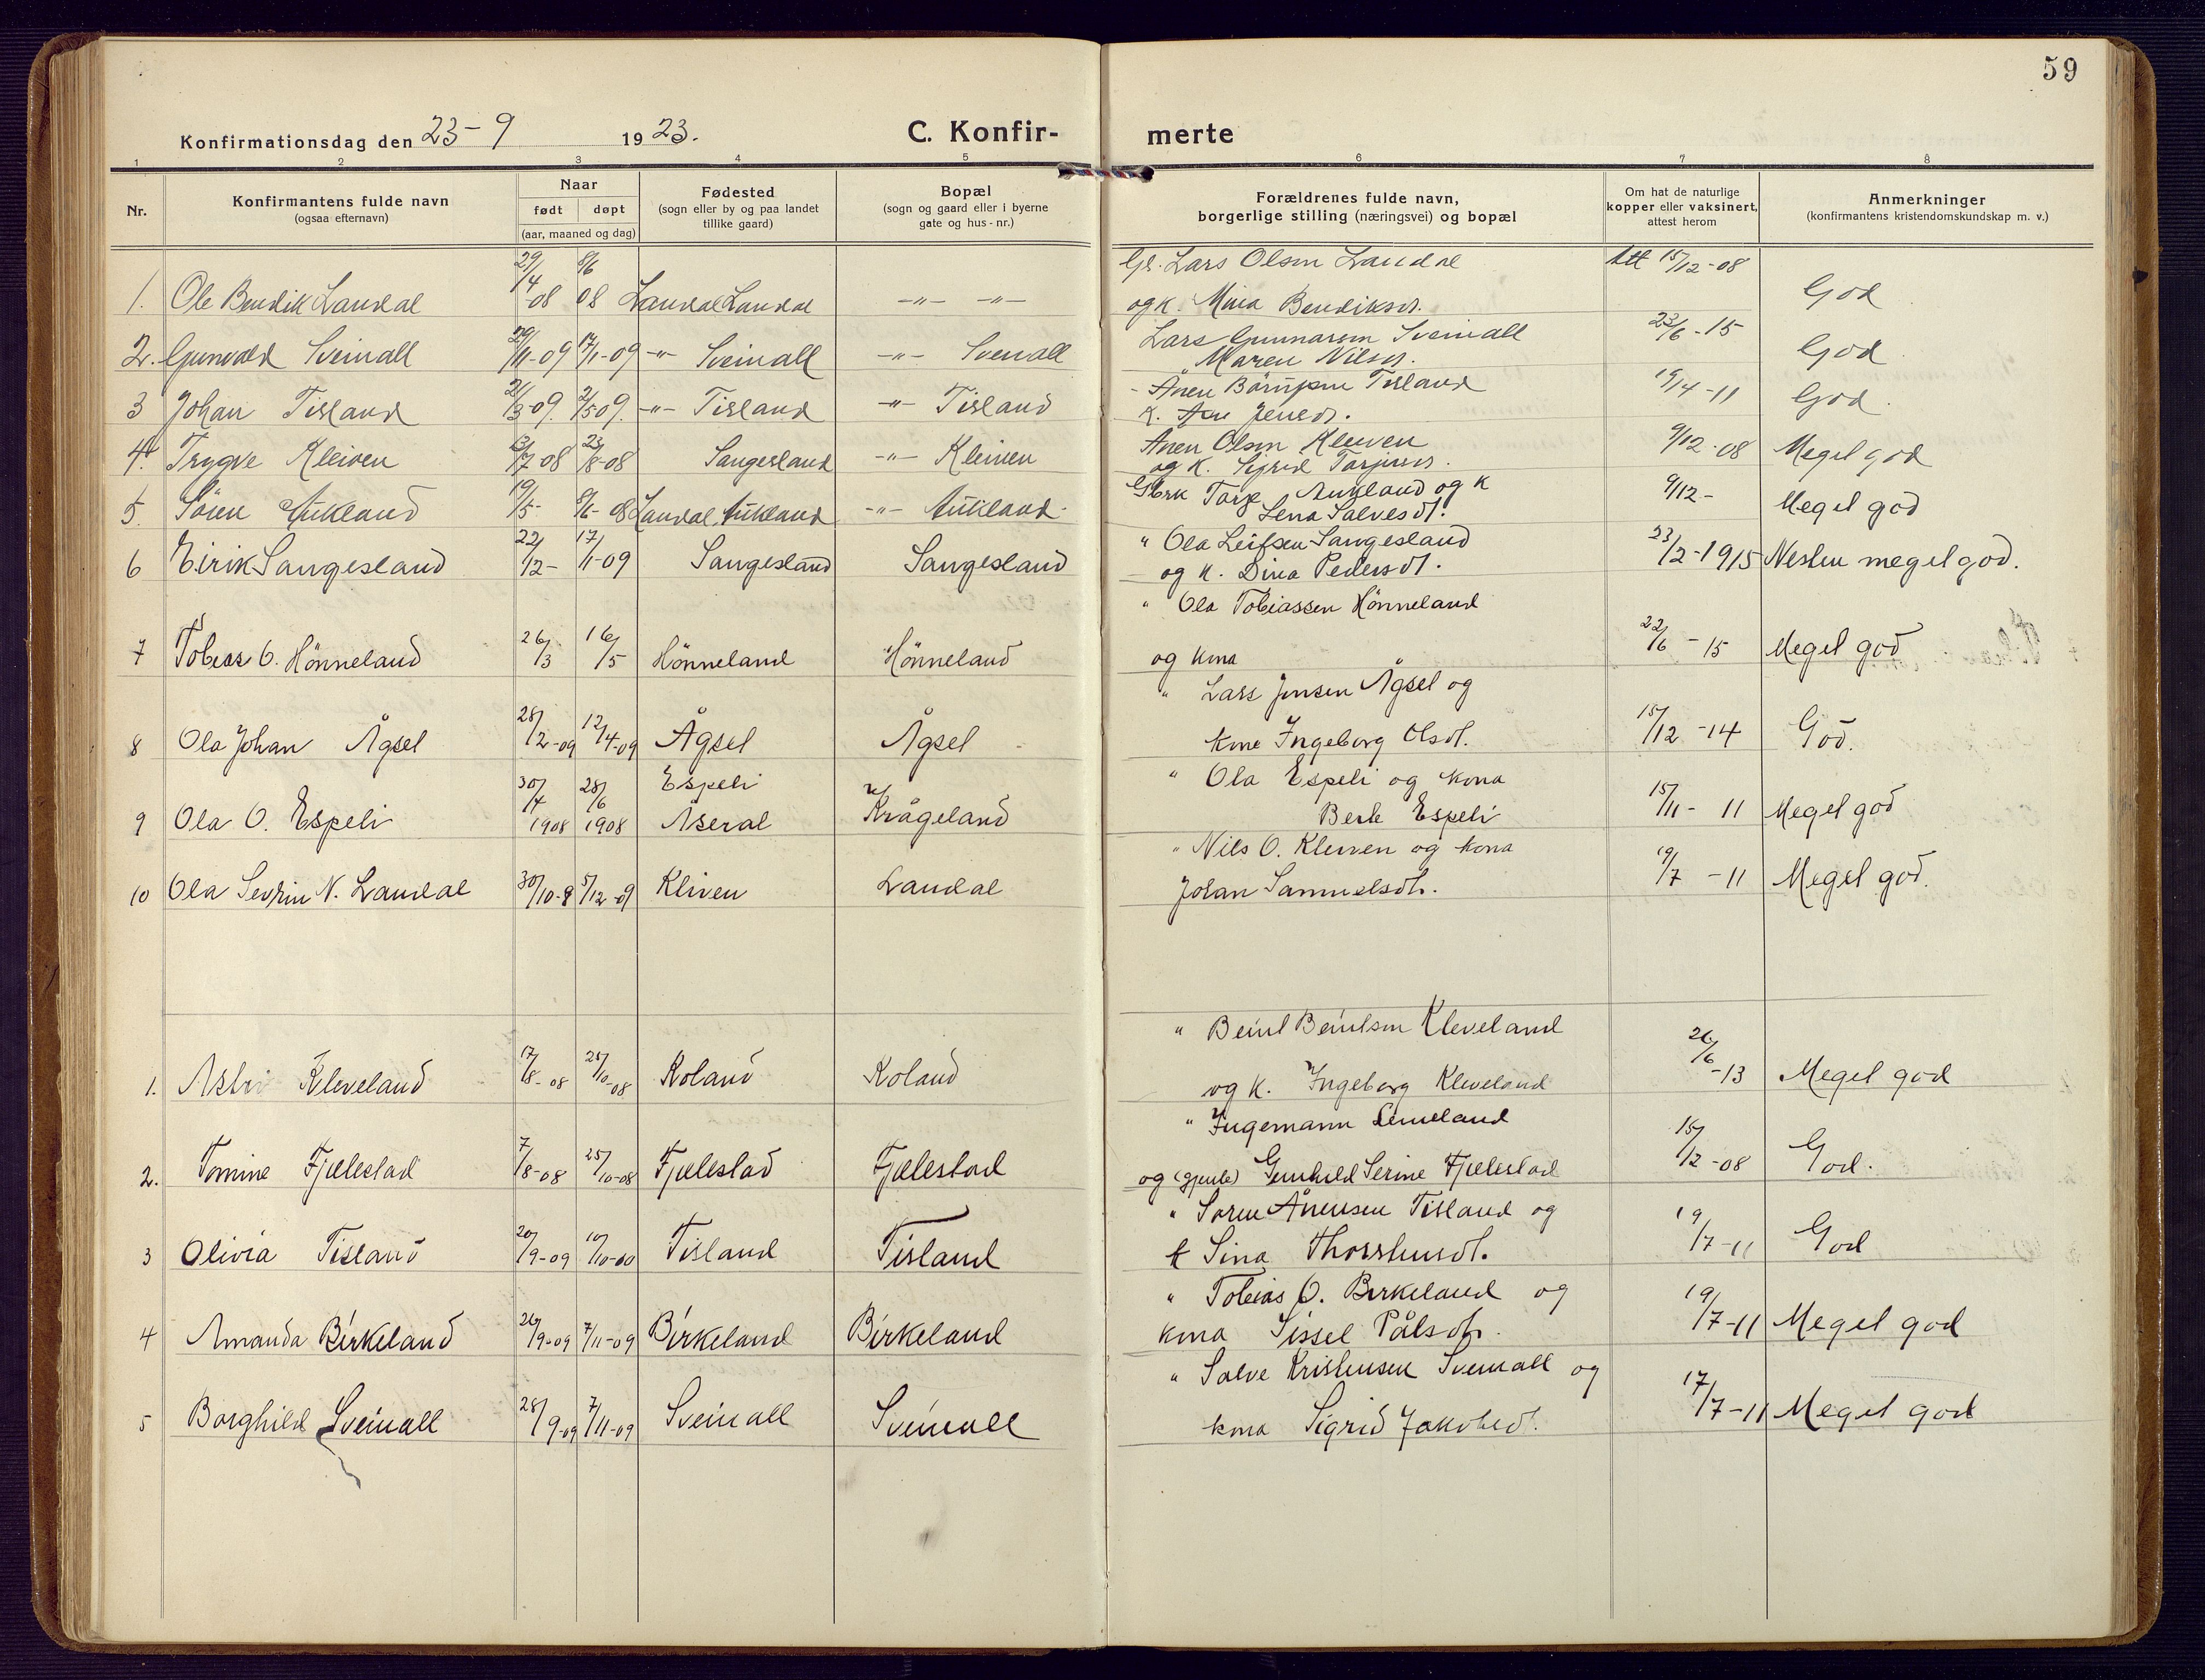 59
Konfirmationsdag den 23-9 1923. C. Konfir- merte
1 2 3 4 5 6 7 8
Nr.
Konfirmantens fulde navn
(ogsaa efternavn)
Naar
født døpt
(aar, maaned og dag)
Fødested
(sogn eller by og paa landet
tillike gaard)
Bopæl
(sogn og gaard eller i byerne
gate og hus-nr.)
Forældrenes fulde navn,
borgerlige stilling (næringsvei) og bopæl
Om hat de naturlige
kopper eller vaksinert,
attest herom
Anmerkninger
(konfirmantens kristendomskundskap m. v.)
1. Ole Bendik Laudal 29/4 08 8/6 08 Laudal Laudal -"- -"- Lars Olsen Laudal Att 15/12-08 God
og k. Mina Bendiksd.
2. Gunvald Sveinall 11-09 17/1-09 -"- Sveinall -"- Sveinall Lars Gunnarsen Sveinall 6-15 God
Maren Nilsd.
3 Johan Tisland 3-09. 2/5 09. -"- Tisland -"- Tisland Ånen Tisland 19/4-11 God.
k. Jensd.
4. Trygve Kleiven 7-08 23/8-08 Sangesland -"- Kleiven Ånen Olsen Kleiven 9/12-08 Meget god
og k. Sigrid Torjusd.
5. Søren Aukland 19/5- 8/6-08 Laudal, Aukland -"- Aukland. Aukland og k 9/12- Meget god
Lena Salvesdt.
6 Eirik Sangesland 22/12- 17/1-09 Sangesland Sangesland " Ola Leifsen Sangesland 23/2-1915 Nesten meget god.
og k. Dina Pedersdt.
7 Tobias O. Hönneland 26/3 16/5 Hönneland Hönneland " Ola Tobiassen Hönneland 22/6-15 Meget god
og kona
8 Ola Johan Ågsel 28/2-09 12/4-09 Ågsel Ågsel " Lars Jensen Ågsel og 15/12-14 God.
kone Ingeborg Olsdt.
9 Ola O. Espeli 30/4 1908 28/6 1908 Espeli Åseral Krågeland " Ola Espeli og kona 15/11-11 Meget god
Berte Espeli
10 Ola Sevrin N. Laudal 30/10-9 5/12-09 Kliven Laudal " Nils O. Kleiven og kona 19/7-11 Meget god.
Johan Samuelsdtr.
1. Kleveland 17/8-08 25/10-08 Koland Koland " Beint Beintsen Kleveland 26/6-13 Meget god
og k. Ingeborg Kleveland
2. Tomine Fjelestad 7/8-08 25/10-08 Fjelestad Fjelestad " Ingemann Lineland 15/12-08 God.
og (gjente) Gunhild Serine Fjelestad
3 Olivia Tisland 20/9-09 10/10-00 Tisland Tisland " Søren Ånensen Tisland og 19/7-11 God
k Sina Thorstensdt.
4 Amanda Birkeland 26/9-09 7/11-09 Birkeland Birkeland " Tobias O. Birkeland og 19/7-11 Meget god
kona Sissel Pålsdtr.
5 Borghild Sveinall 28/9-09 7/11-09 Sveinall Sveinall " Salve Kristensen Sveinall og 17/7-11 Meget god
kona Sigrid Jakobsdt.